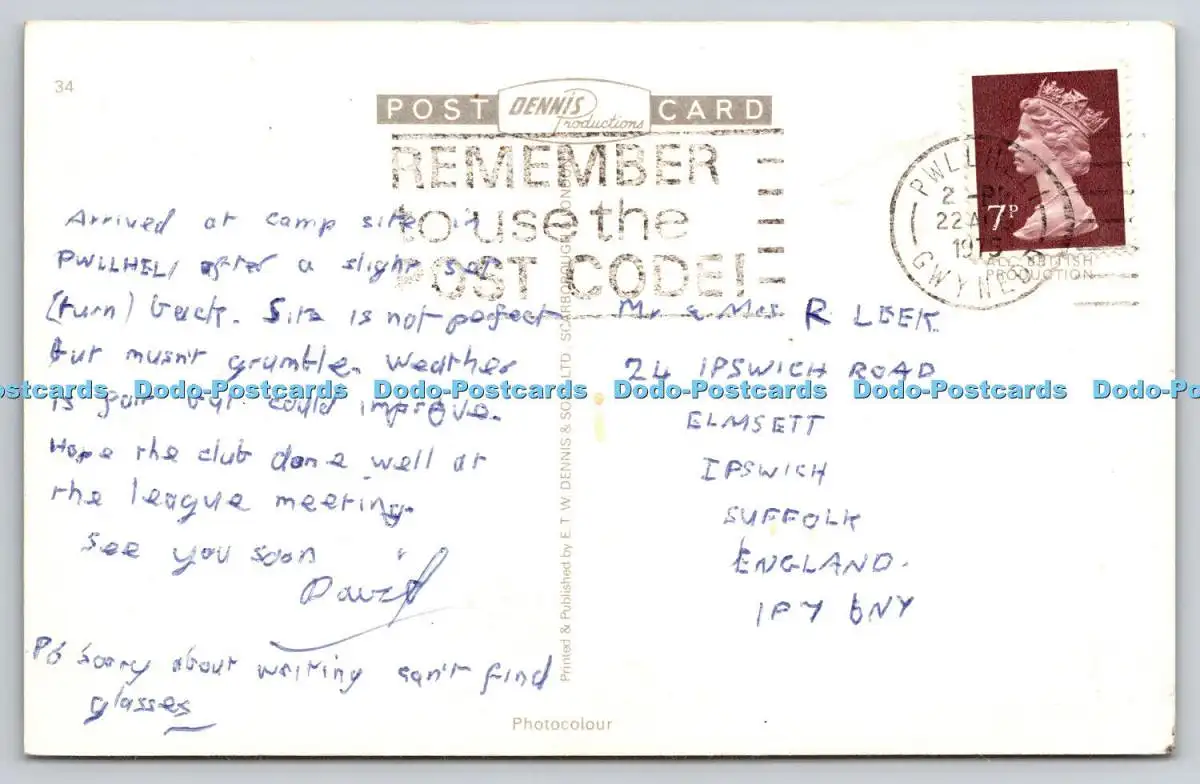 34
POST DENNIS Productions CARD
REMEMBER
to use the
POST CODE!
PWLLHELI
2
22 AU
197
GWYNEDD
7P
ALL BRITISH
PRODUCTION
Arrived at camp site in
PWLLHELI after a slight set
(turn) back. Site is not perfect
but musn't grumble. Weather
is fair but could improve.
Hope the club done well at
the league meeting.
See you soon
David
PS Sorry about writing can't find
glasses
Mr & Mrs R LEEK
24 IPSWICH ROAD
ELMSETT
IPSWICH
SUFFOLK
ENGLAND.
IP7 6NY
Printed & Published by E.T.W. DENNIS & SONS LTD SCARBOROUGH LONDON
Photocolour
Dodo-Postcards Dodo-Postcards Dodo-Postcards Dodo-Postcards Dodo-Postcards Dodo-Postcards